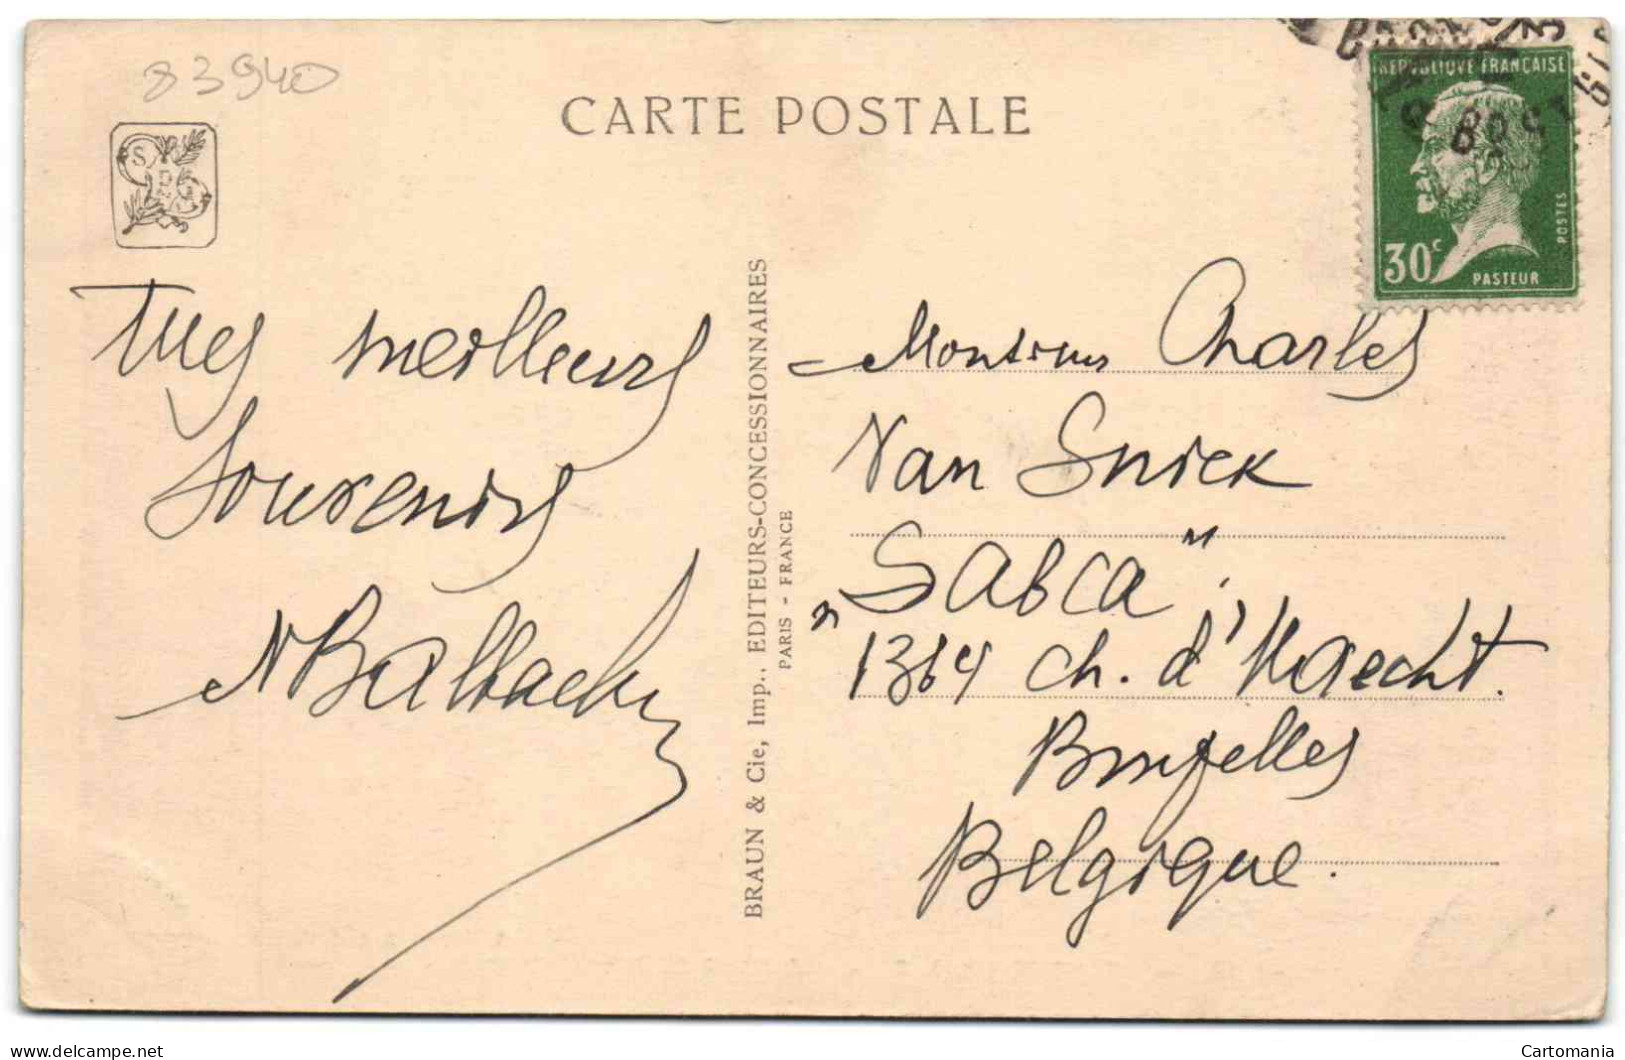 83940
CARTE POSTALE
RÉPUBLIQUE FRANÇAISE
30c
POSTES
PASTEUR
mes meilleurs
souvenirs
BRAUN & Cie, Imp., EDITEURS-CONCESSIONNAIRES
PARIS - FRANCE
Monsieur Charles
Van Sniek
"Sabca"
1364 ch. d'Haecht.
Bruxelles
Belgique.
Cartomania